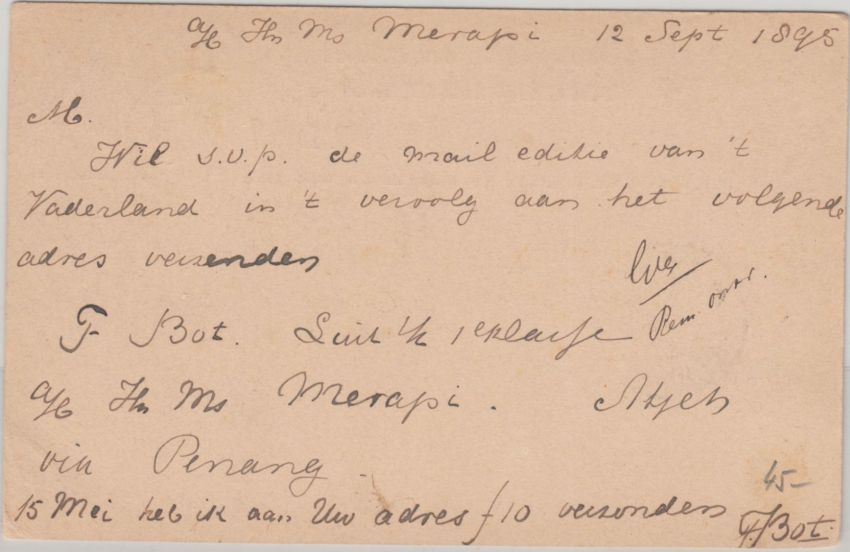 a/b Hr Ms Merapi 12 Sept 1895
M.
Wil s.v.p. de mail editie van 't
Vaderland in 't vervolg aan het volgende
adres verzenden
F Bot. Luit t/z 1e klasse
a/b Hr Ms Merapi. Atjeh
via Penang.
45-
15 Mei heb ik aan Uw adres f 10 verzonden
F. Bot.